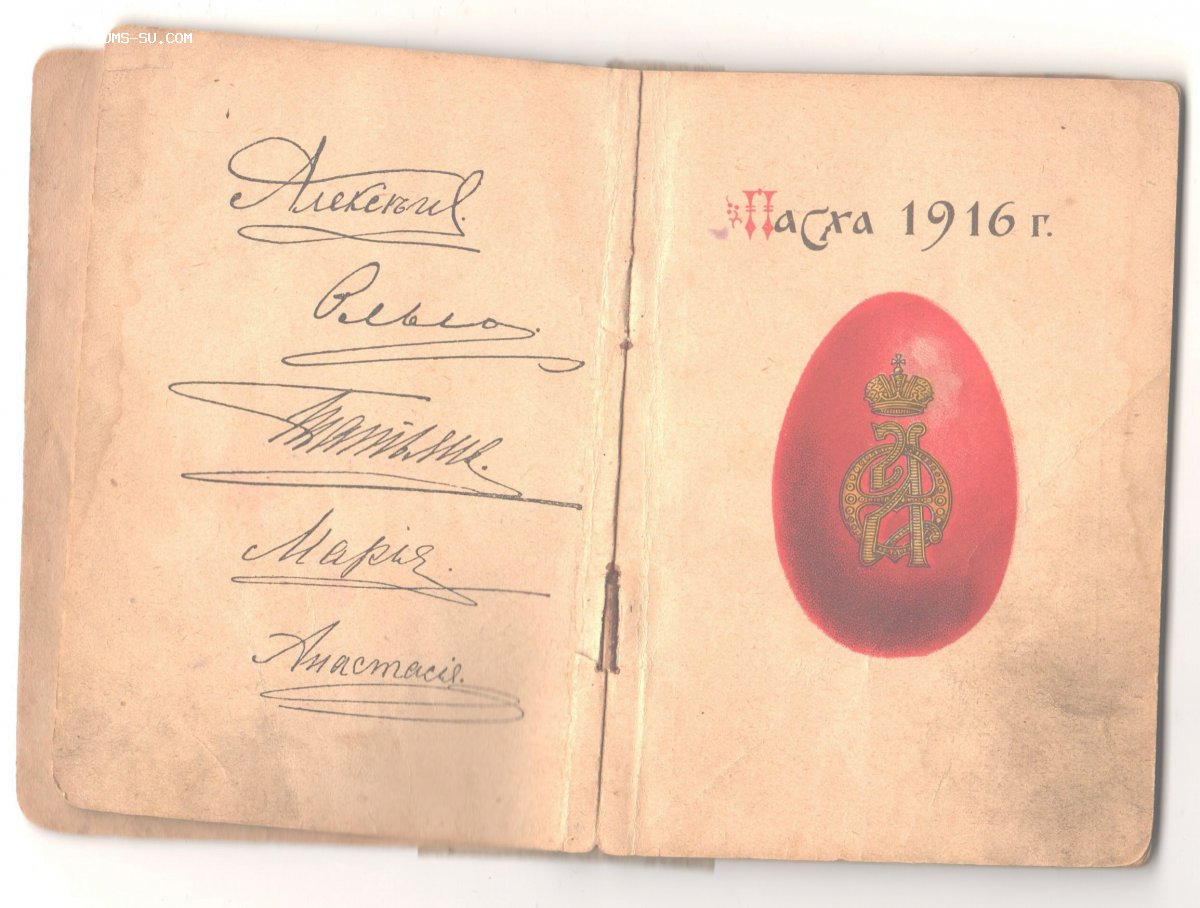 UMS-SU.COM
Алексѣй.
Ольга.
Татьяна.
Марія.
Анастасія.
Пасха 1916 г.